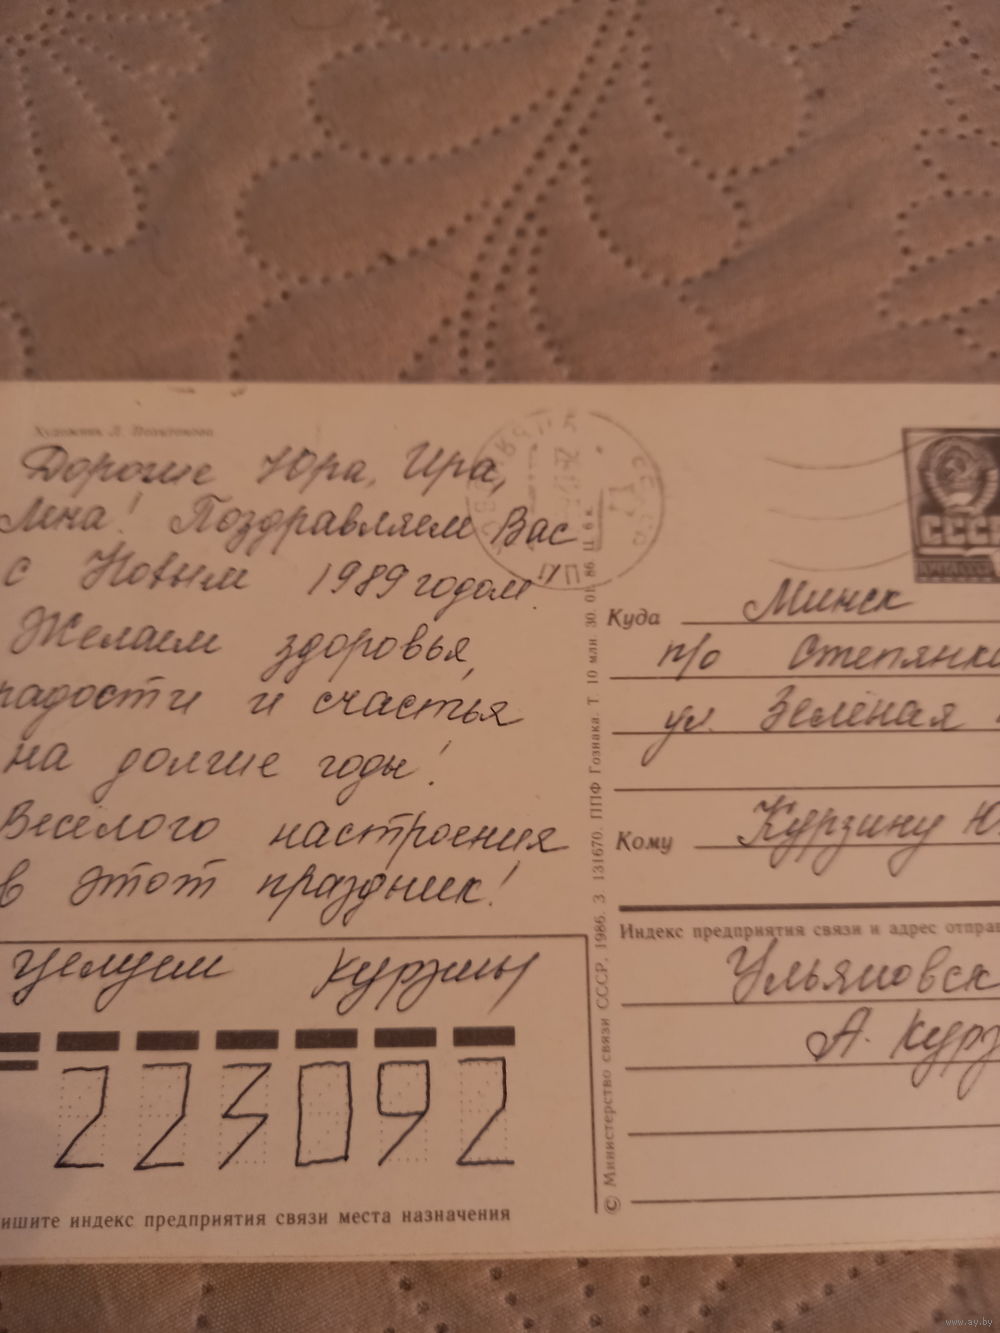 Художник Л.
Дорогие Юра, Ира,
Лена! Поздравляем Вас
с Новым 1989 годом!
Желаем здоровья,
радости и счастья
на долгие годы!
Весёлого настроения
в этот праздник!
Целуем Курзины
223092
ишите индекс предприятия связи места назначения
© Министерство связи СССР, 1986. З 131670. ППФ Гознака. Т. 10 млн 30. 01. 86. Ц. 6 к.
СССР
Куда Минск
п/о Степянка
ул. Зелёная
Кому Курзину Ю
Индекс предприятия связи и адрес отправ
Ульяновск
А. Курз
www.ay.by